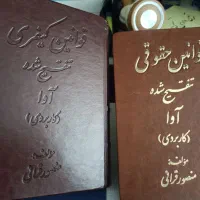 قوانین کیفری
تنقیح شده
آوا
(کاربردی)
مؤلف:
منصور قرائی
قوانین حقوقی
تنقیح شده
آوا
(کاربردی)
مؤلف:
منصور قرائی